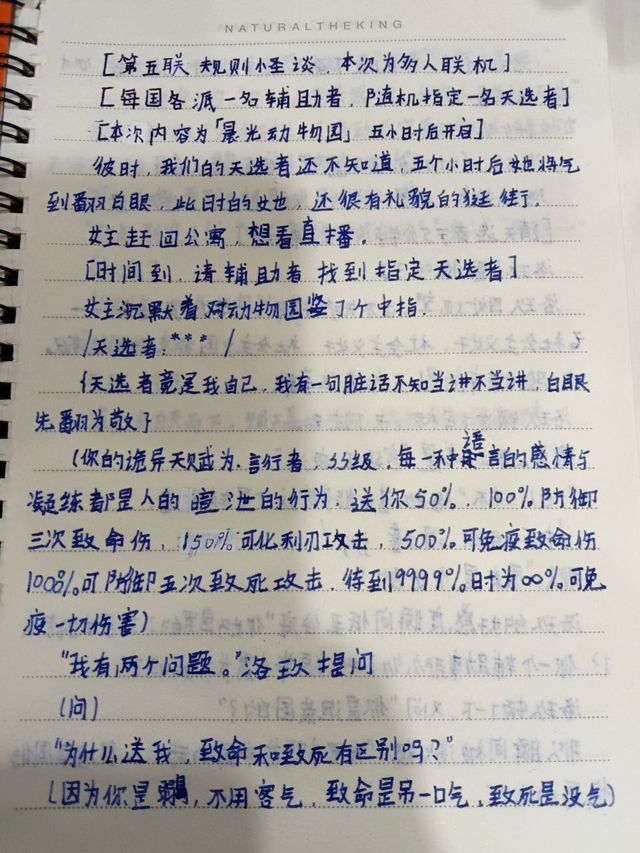 NATURALTHEKING
[第五联 规则怪谈，本次为多人联机]
[每国各派一名辅助者，随机指定一名天选者]
[本次内容为「晨光动物园」五小时后开启]
彼时，我们的天选者还不知道，五个小时后她将气
到翻白眼，此时的女也，还很有礼貌的猛 键行
女主赶回公寓，想看直播。
[时间到，请辅助者 找到指定天选者]
女主沉默着对动物园竖了个中指.
/天选者：*** /
{天选者竟是我自己，我有一句脏话不知当讲不当讲，白眼
先翻为敬}
(你的诡异天赋为：言行者，SS级，每一种語言的感情与
凝练都是人的 喧泄的行为，送你50%，100%防御
三次致命伤，150%可化利刃攻击，500%可免疫致命伤
1000%可防御五次致死攻击，待到9999%时为∞%可免
疫一切伤害)
"我有两个问题。"洛玖提问
(问)
"为什么送我，致命和致死有区别吗？"
(因为你是弱，不用客气，致命是吊一口气，致死是没气)